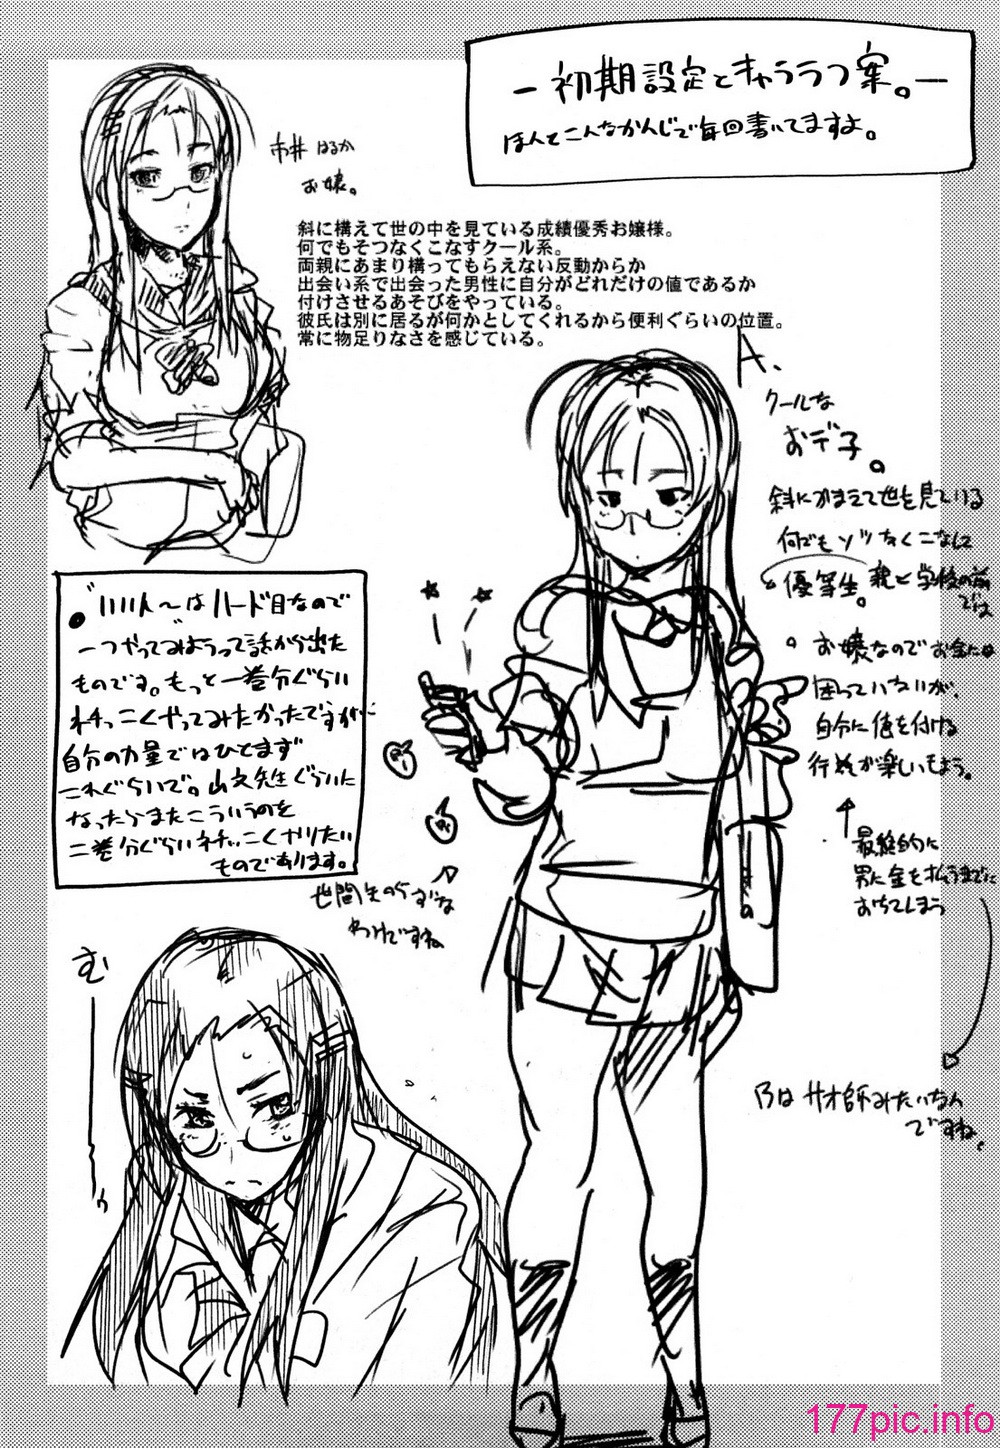 －初期設定とキャララフ案。－
ほんとこんなかんじで毎回書いてますよ。
市井 はるか
お嬢。
斜に構えて世の中を見ている成績優秀お嬢様。
何でもそつなくこなすクール系。
両親にあまり構ってもらえない反動からか
出会い系で出会った男性に自分がどれだけの値であるか
付けさせるあそびをやっている。
彼氏は別に居るが何かとしてくれるから便利ぐらいの位置。
常に物足りなさを感じている。
A.
クールな
おデ子。
斜にかまえて世を見ている
何でもソツなくこなして
優等生。親と学校の前
では
。お嬢なのでお金には
困っていないが、
自分に値を付ける
行為が楽しいもよう。
最終的に
男に金を払うまでに
おちてしまう
Bは サオ師みたいなん
ですね。
一つやってみようって話から出た
ものです。もっと一巻分ぐらい
ネチっこくやってみたかったですが…
自分の力量ではひとまず
これぐらいで。
なったらまたこういうのを
二巻分ぐらいネチっこくやりたい
ものであります。
世間知らずな
わけですね
む
177pic.info